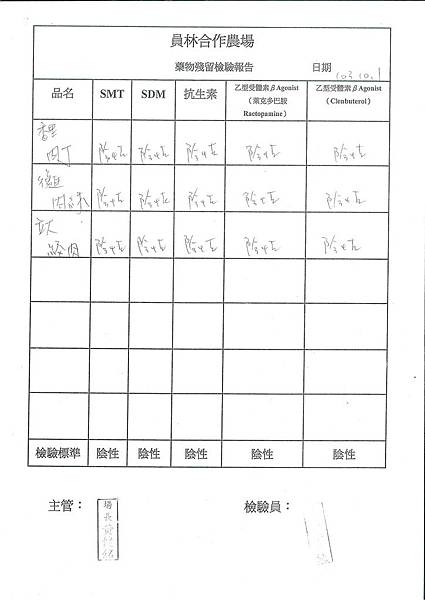 員林合作農場
藥物殘留檢驗報告
日期 103.10.1
品名 SMT SDM 抗生素 乙型受體素βAgonist（萊克多巴胺Ractopamine） 乙型受體素βAgonist（Clenbuterol）
肉丁 陰性 陰性 陰性 陰性 陰性
陰性 陰性 陰性 陰性 陰性
絞肉 陰性 陰性 陰性 陰性 陰性
檢驗標準 陰性 陰性 陰性 陰性 陰性
主管： 檢驗員：
場長黃